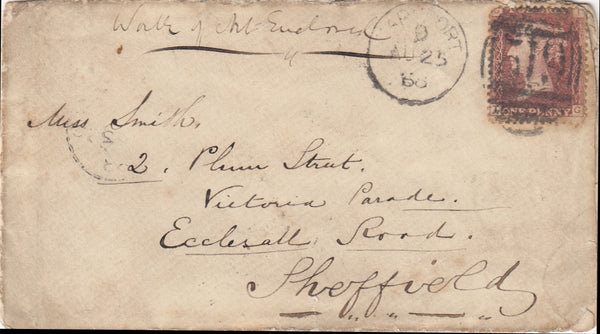 Work of Art Enclosed
D
AU 25
68
ONE PENNY
G
Miss Smith,
2, Plum Street.
Victoria Parade.
Ecclesall Road.
Sheffield